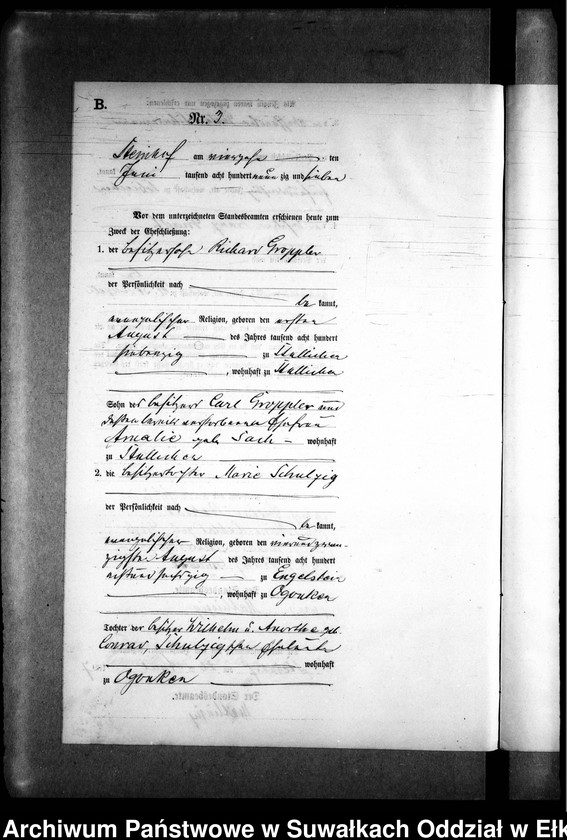 B.
Nr. 3.
Steinhof am vierzehn ten
Juni tausend acht hundert neun zig und sieben
Vor dem unterzeichneten Standesbeamten erschienen heute zum
Zweck der Eheschließung:
1. der Besitzersohn Richard Groppler
der Persönlichkeit nach
be kannt,
evangelischer Religion, geboren den ersten
August des Jahres tausend acht hundert
siebenzig zu Stullichen
, wohnhaft zu Stullichen
Sohn des Besitzers Carl Groppler und
dessen bereits verstorbenen Ehefrau
Amalie geb. Sach wohnhaft
zu Stullichen
2. die Besitzertochter Marie Schulzig
der Persönlichkeit nach
be kannt,
evangelischer Religion, geboren den vierundzwan-
zigsten August des Jahres tausend acht hundert
achtundsechszig zu Engelstein
, wohnhaft zu Ogonken
Tochter der Besitzer Wilhelm u. Anorthe geb.
Conrad, Schulzigschen Eheleute
wohnhaft
zu Ogonken
Archiwum Państwowe w Suwałkach Oddział w Ełk